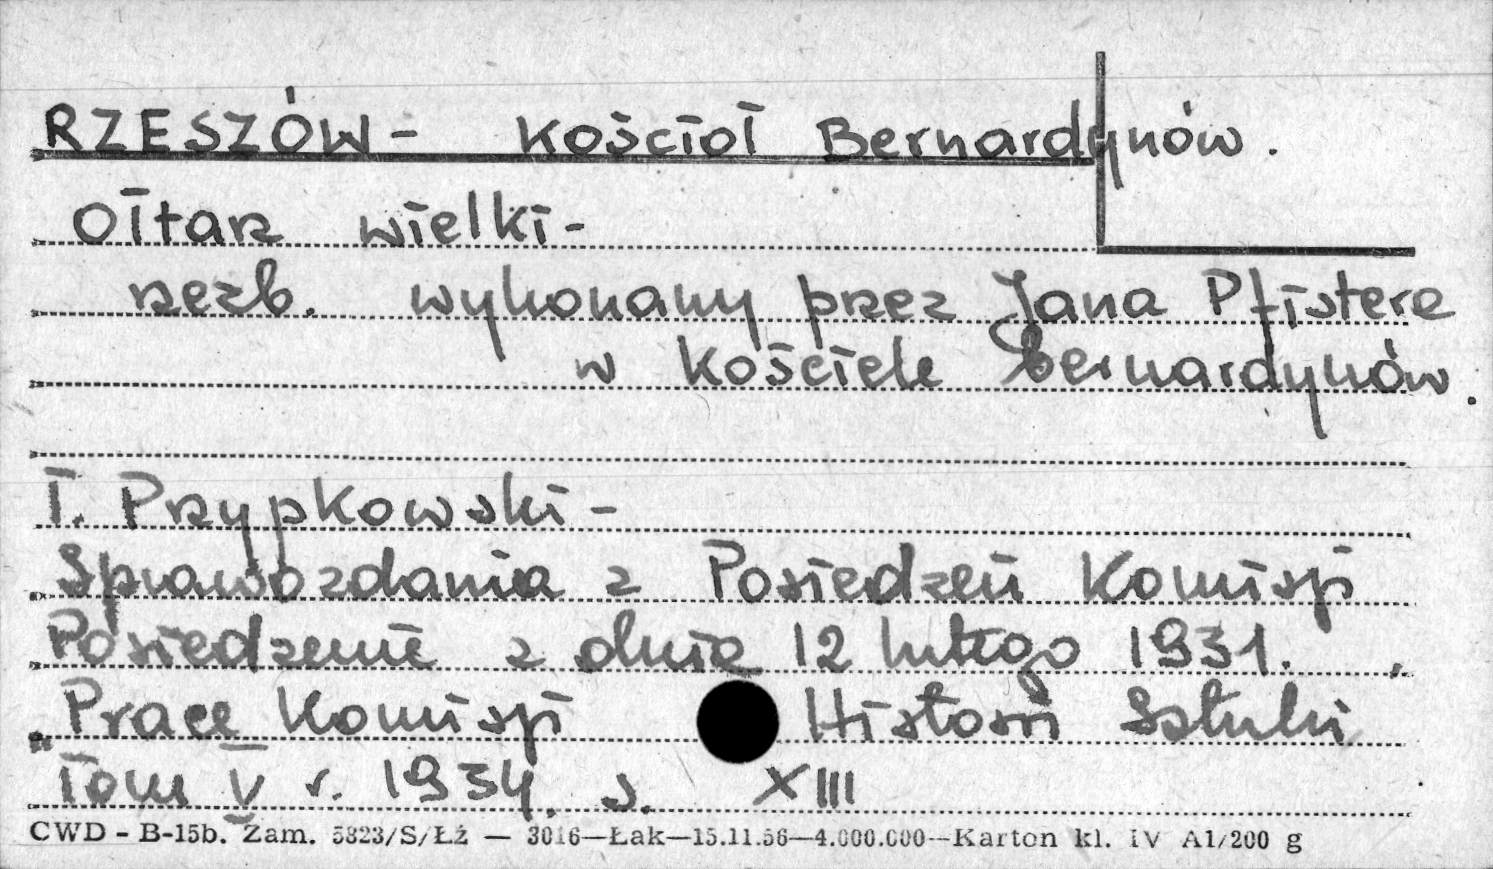 RZESZÓW - Kościoł Bernardynów.
Ołtarz wielki -
rzezb. wykonany przez Jana Pfistera
w Kościele Bernardynów.
T. Przypkowski -
Sprawozdania z Posiedzeń Komisji
Posiedzenie z dnia 12 lutego 1931.
Prace Komisji Historii Sztuki
Tom V r. 1934. s. XIII
CWD - B-15b. Zam. 5823/S/Łź — 3016—Łak—15.11.56—4.000.000—Karton kl. IV A1/200 g